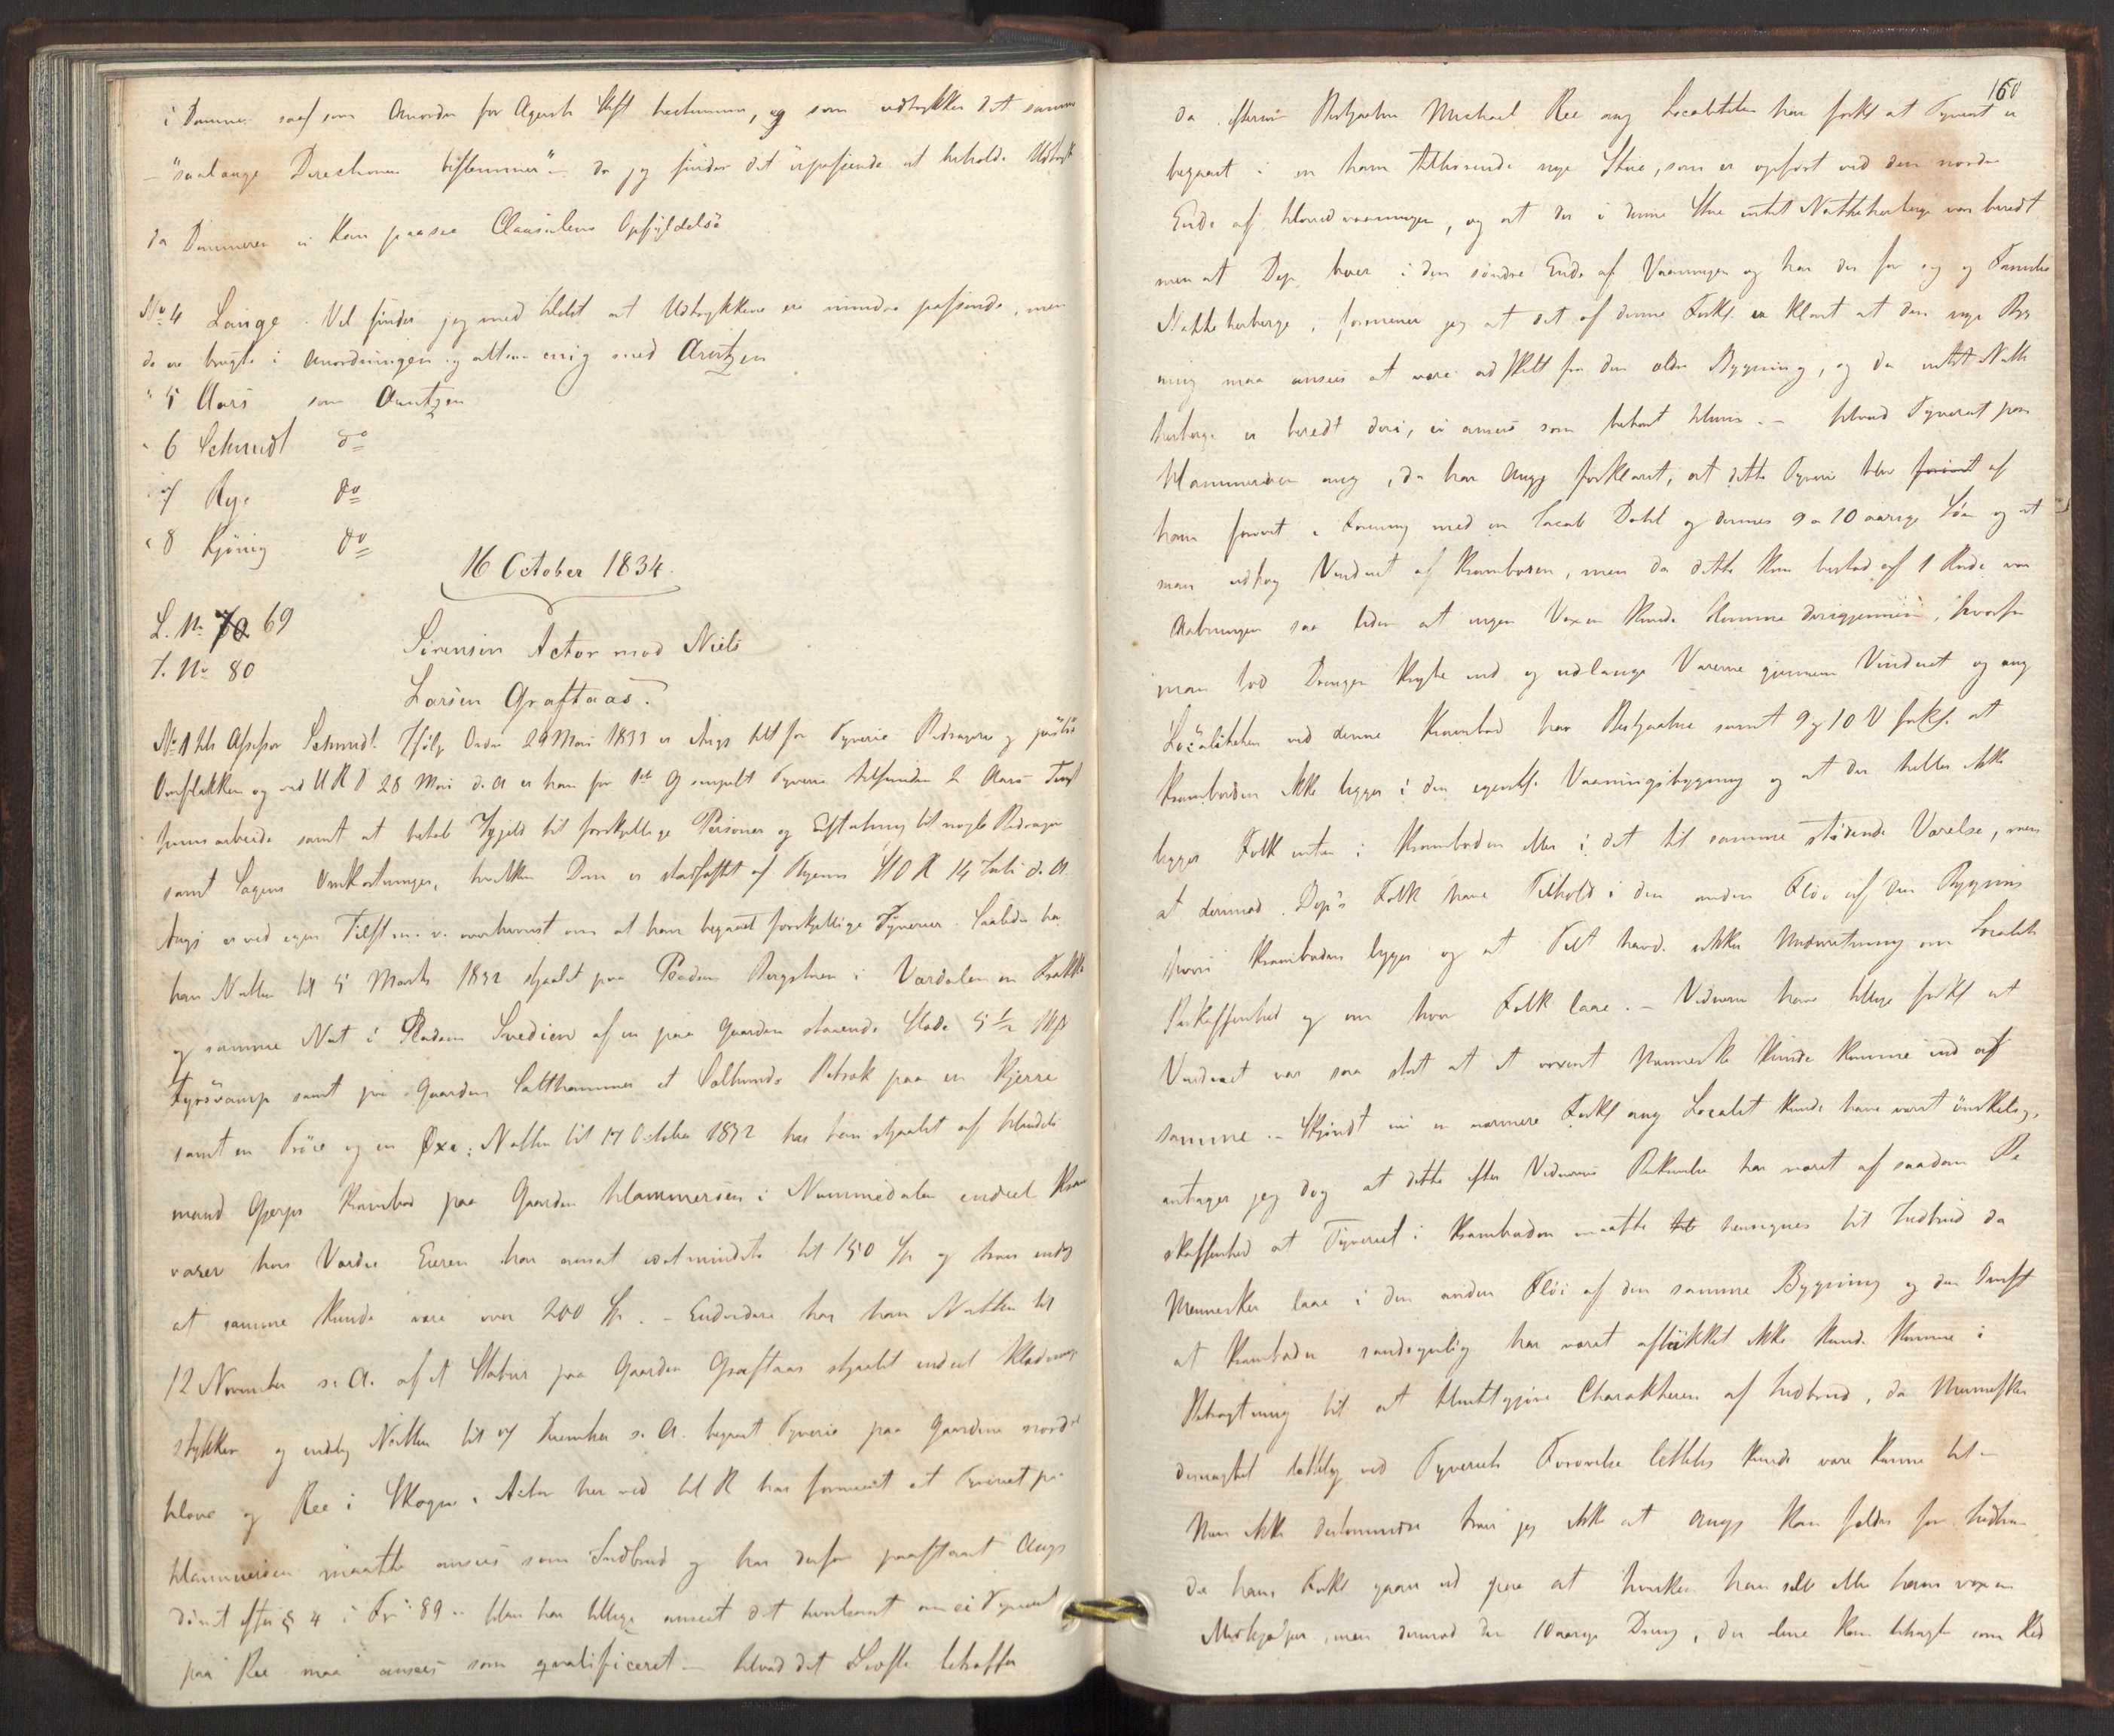 i Dommen saa som Anordn for Agers Stift bestemmer, og som udtrykker det samme
- "saalænge Directionen bestemmer" - da jeg finder det upassende at beholde Udtryk
da Dommeren ei kan paasee Clausulens Opfyldelse
No 4 Lange. Vel finder jeg med Holst at Udtrykkene ere mindre passende, men
de ere brugte i Anordningen og altsaa enig med Arntzen
" 5 Aars som Arntzen
" 6 Schmidt do
" 7 Rye do
" 8 Kjönig do
16 October 1834.
L. No 70 69
T. No 80
Sörensen Actor mod Niels
Larsen Graftaas.
No 1 Hr Assessor Schmidt. Ifölge Ordre 29 Mai 1833 er Angj tilt for Tyverie Bedragerie og
Omflakken og ved U R D 28 Mai d. A er han for 1ste G simpelt Tyverie tilfunden 2 Aars Tugt
huusarbeide samt at betale Igjeld til forskjellige Personer og Erstatning til nogle
samt Sagens Omkostninger, hvilken Dom er stadfæstet af Byens S O R 14 Juli d. A.
Angj er ved egen Tilst m. v. overbeviist om at have begaaet forskjellige Tyverier. Saaledes har
han Natten til 5 Marts 1832 stjaalet paa Pladsen Bergsteen i Værdalen en
og samme Nat i Pladsen Svedien af en paa Gaarden staaende Slæde 5 1/2
samt paa Gaarden Salthammer et Sælhunds paa en Kjerre
samt en Tröie og en Öxe; Natten til 17 October 1832 har han stjaalet af Handels
mand Gjerps Krambod paa Gaarden Hammersen i Nummedalen endeel Kram
varer hvis Værdie Eieren har ansat idetmindste til 150 Sp og troer endog
at samme kunde være over 200 Sp. - Endvidere har han Natten til
12 November s. A. af et Stabur paa Gaarden Graftaas stjaalet endeel Klædnings
stykker og endelig Natten til 7 December s. A. begaaet Tyverie paa Gaardene nordre
Holme og Ree i Skogn. Actor her ved St R har formeent at Tyveriet paa
Hammersen maatte ansees som Indbrud og har derfor paastaaet Angj
dömt efter § 4 i Fr: 89. Han har tillige anseet det tvivlsomt om ei Tyveriet
paa Ree maa ansees som qvalificeret - Hvad det Sidste betræffer
160
da efterat Bestjaalne Michael Ree ang Localiteten har forkl at Tyveriet er
begaaet i en ham tilhörende nye Stue, som er opfört ved den nordre
Ende af Hovedvaaningen, og at der i denne Stue intet Natteherberge var beredt
men at Dep boer i den söndre Ende af Vaaningen og har der for sig og Familie
Natteherberge, formener jeg at det af denne Forkl er klart at den nye Byg
ning maa ansees at være adskilt fra den ældre Bygning, og da intet Natte
herberge er beredt deri, ei ansees som beboet Huus. - Hvad Tyveriet paa
Hammersen ang, da har Angj forklaret, at dette Tyverie blev af
ham forövet i Forening med en Jacob Dahl og dennes 9 a 10 aarige Sön og at
man udtog Vinduet af Kramboden, men da dette kun bestod af 1 Rude var
Aabningen saa liden at ingen Voxen kunde komme derigjennem, hvorfor
man lod Drengen krybe ind og udlange Varerne gjennem Vinduet og ang
Localiteten ved denne Krambod har Bestjaalne samt 9 og 10 V forkl. at
Kramboden ikke ligger i den egentlige Vaaningsbygning og at der heller ikke
ligger Folk enten i Kramboden eller i det til samme stödende Værelse, men
at derimod Dep's Folk have Tilhold i den anden Flöi af den Bygning
hvori Kramboden ligger og at Tilt havde sikker Underretning om Localitets
Beskaffenhed og om hvor Folk laae. - Vidnerne have tillige forkl at
Vinduet var saa stort at et voxent Menneske kunde komme ind af
samme. - Skjöndt nu en nærmere Forkl ang Localitet kunde have været önskelig,
antager jeg dog at dette efter Vidnernes Bekræftelse har været af saadan Be
skaffenhed at Tyveriet i Kramboden maatte henregnes til Indbrud da
Mennesker laae i den anden Flöi af den samme Bygning og den Omst
at Kramboden sandsynlig har været aflukket ikke kunde komme i
Betragtning til at tilintetgjöre Charakteren af Indbrud, da Mennesker
desuagtet ved Tyveriets Forövelse lettelig kunde være komne til -
Men ikke destomindre troer jeg ikke at Angj kan fældes for Indbrud
da hans Forkl gaaer ud paa at hverken han selv eller hans voxne
Medhjælper, men derimod den 10aarige Dreng, der alene kan betragtes som Red